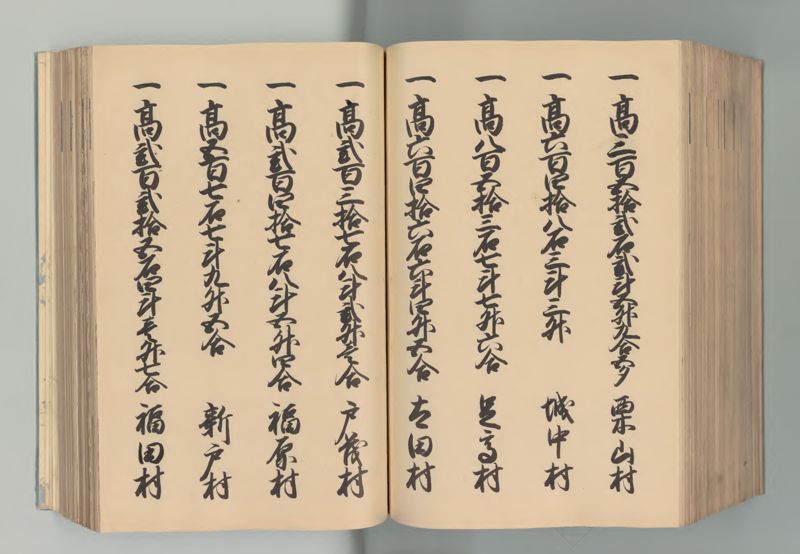 一 高三百五拾弐石弐斗五升九合五夕 栗山村
一 高六百四拾八石三斗三升 城中村
一 高八百五拾三石七斗七升六合 足高村
一 高六百四拾六石四斗四升五合 太田村
一 高弐百三拾七石八斗弐升壱合 戸茂村
一 高弐百四拾七石八斗五升四合 福原村
一 高五百七石七斗九升五合 新戸村
一 高弐百弐拾五石四斗壱升七合 福田村